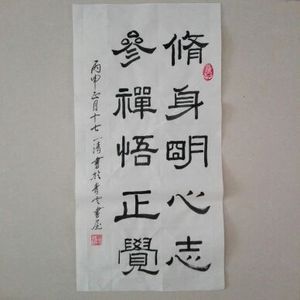 脩身明心志
參禪悟正覺
丙申正月十七一濤書於青雲書屋